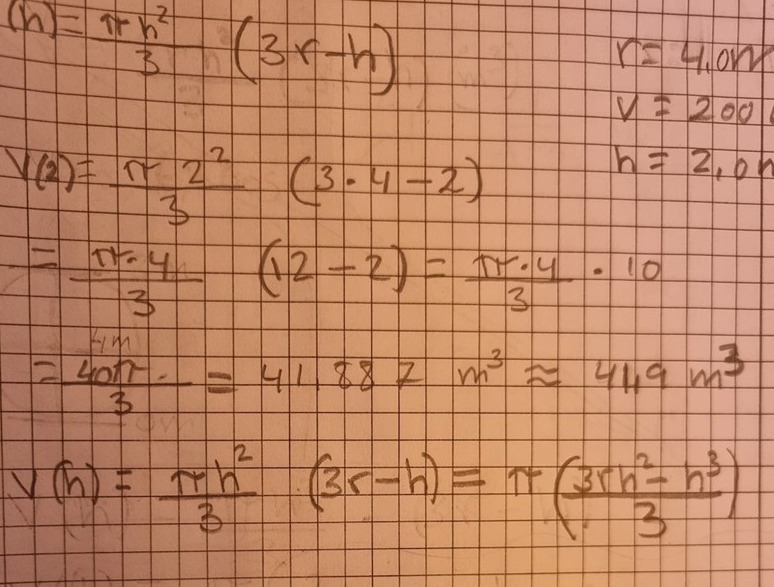 (h) = πh²/3 (3r-h)
r = 4,0m
V = 200
h = 2,0
V(2) = π 2²/3 (3·4-2)
= π·4/3 (12-2) = π·4/3 · 10
= 40π/3 = 41,887 m³ ≈ 41,9 m³
V(h) = πh²/3 (3r-h) = π(3rh²-h³/3)